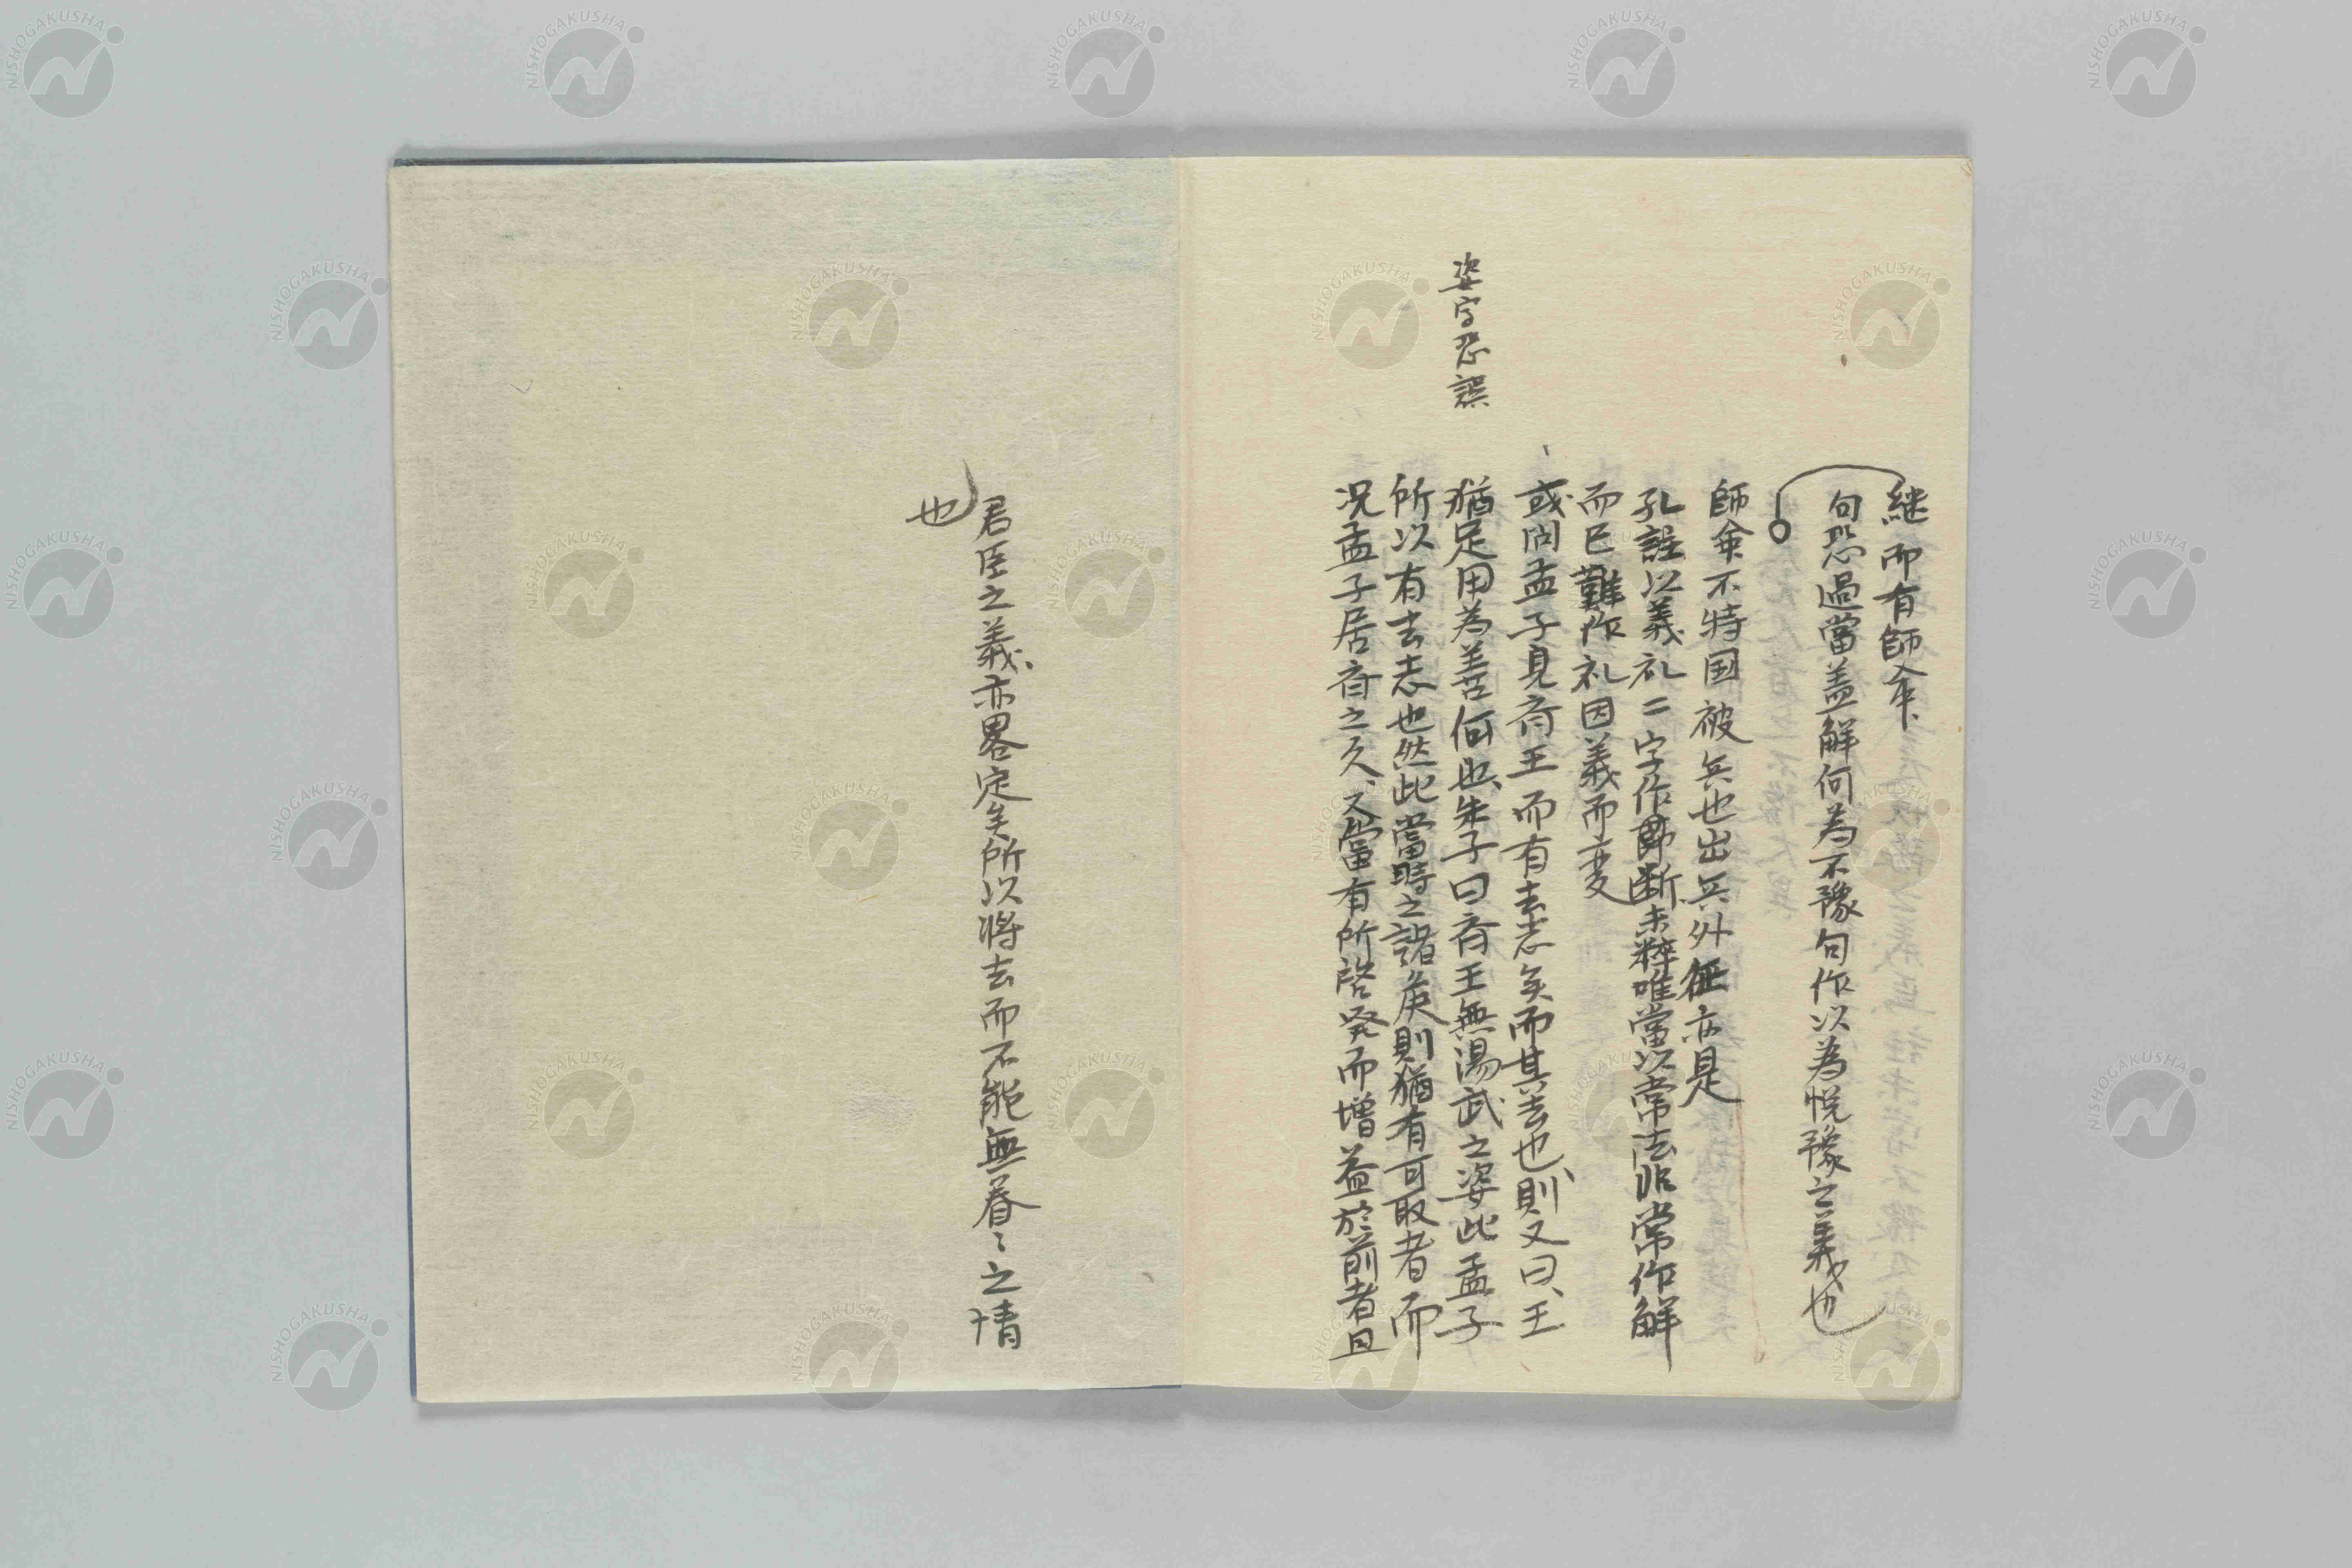 継而有師命
句恐過當盖解何為不豫句作以為悦豫之義也
師命不特国被兵也出兵外征亦是
孔註以義礼二字作断未粹唯當以常法非常作解
而已難作礼因義而変
姿字恐誤
或問孟子見斉王而有去志矣而其去也、則又曰、王
猶足用為善何也、朱子曰斉王無湯武之姿此孟子
所以有去志也然此當時之諸侯則猶有可取者而
况孟子居斉之久、又當有所啓発而増益於前者且
君臣之義、亦畧定矣所以将去而不能無眷〻之情
也
NISHOGAKUSHA